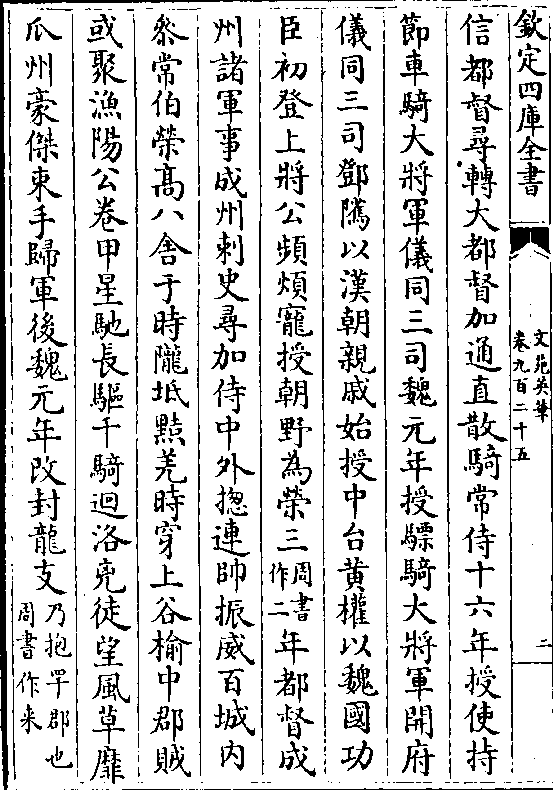 欽定四庫全書
文苑英華
卷九百二十五
二
信都督尋轉大都督加通直散騎常侍十六年授使持
節車騎大將軍儀同三司魏元年授驃騎大將軍開府
儀同三司鄧隲以漢朝親戚始授中台黄權以魏國功
臣初登上將公頻煩寵授朝野為榮三周書作二年都督成
州諸軍事成州刺史尋加侍中外摠連帥振威百城内
叅常伯榮髙八舍于時隴坻黠羌時穿上谷榆中郡賊
或聚漁陽公卷甲星馳長驅千騎迴洛兇徒望風草靡
瓜州豪傑束手歸軍後魏元年改封龍支乃抱罕郡也周書作来